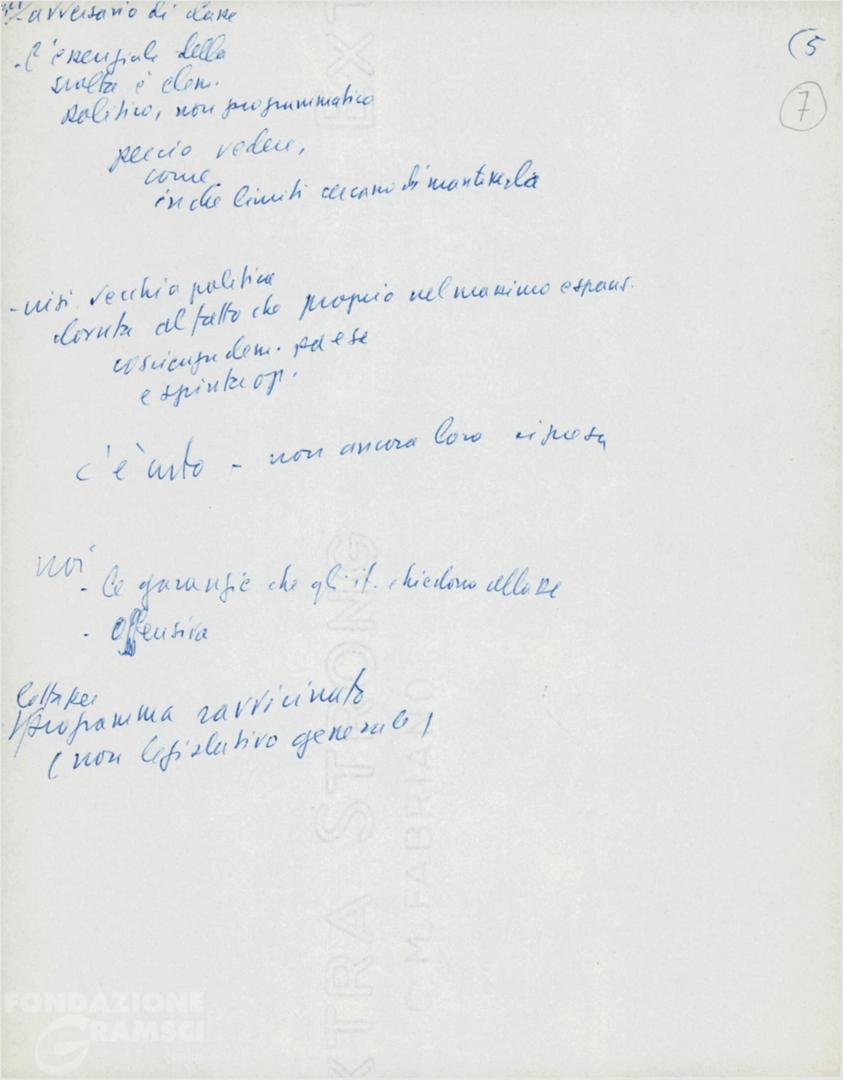 avversario di classe
(5
7
- l'essenziale della
svolta è elem.
politico, non programmatico
perciò vedere,
come
in che limiti cercano di mantenerla
- vecchia politica
dovuta al fatto che proprio nel massimo espans.
coscienza dem. paese
e spinta op.
c'è urto - non ancora loro ripresa
noi
- le garanzie che gli it. chiedono
- offensiva
lotta per
programma ravvicinato
(non legislativo generale)
EXTRA STRONG
C. M. FABRIANO
EXT
FONDAZIONE
GRAMSCI